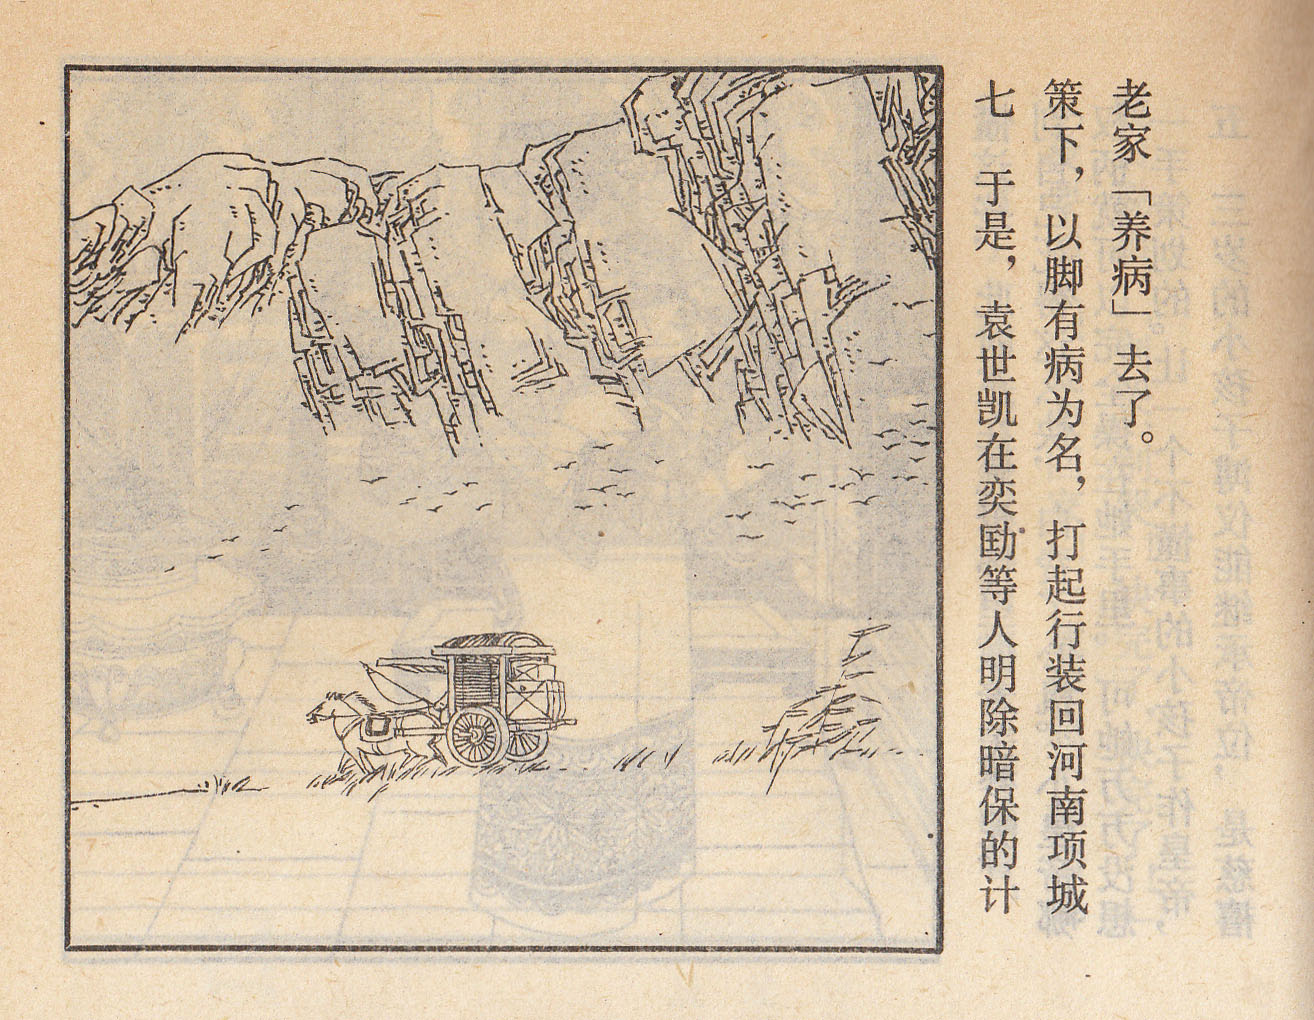 七 于是，袁世凯在奕劻等人明除暗保的计
策下，以脚有病为名，打起行装回河南项城
老家「养病」去了。